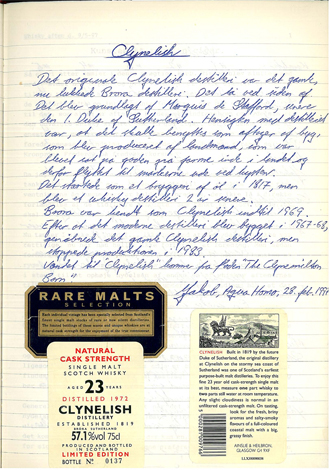 Clynelish
Det originale Clynelish destilleri var det gamle,
nu lukkede Brora destilleri. Det lå ved siden af
Det blev grundlagt af Marquis de Stafford, senere
den 1. Duke of Sutherland. Hensigten med destilleriet
var, at det skulle benyttes som aftager af byg,
som blev produceret af landmænd, som var
blevet sat på goden små farme inde i landet og
derfor flyttet til markerne ude ved kysten.
Det startede som et bryggeri af øl i 1817, men
blev et whisky destilleri 2 år senere.
Brora var kendt som Clynelish indtil 1969.
Efter at det moderne destilleri blev bygget i 1967-68,
genåbnede det gamle Clynelish destilleri, men
stoppede produktionen i 1983
Vandet til Clynelish kommer fra floden "The Clynemilton
Burn"
Jakob, Aqua Homo, 28. feb. 199
RARE MALTS
SELECTION
Each individual vintage has been specially selected from Scotland's
finest single malt stocks of rare or now silent distilleries.
The limited bottlings of these scarce and unique whiskies are at
natural cask strength for the enjoyment of the true connoisseur.
NATURAL
CASK STRENGTH
SINGLE MALT
SCOTCH WHISKY
AGED 23 YEARS
DISTILLED 1972
CLYNELISH
DISTILLERY
ESTABLISHED 1819
BRORA SUTHERLAND
57.1%vol 75cl
PRODUCED AND BOTTLED
IN SCOTLAND
LIMITED EDITION
BOTTLE Nº 0137
CLYNELISH Built in 1819 by the future
Duke of Sutherland, the original distillery
at Clynelish on the stormy sea coast of
Sutherland was one of Scotland's earliest
purpose-built malt distilleries. To enjoy this
fine 23 year old cask-strength single malt
at its best, measure one part whisky to
two parts still water at room temperature.
Any slight cloudiness is normal in an
unfiltered cask-strength malt. On tasting,
look for the fresh, briny
aromas and salty-smoky
flavours of a full-coloured
coastal malt with a big,
grassy finish.
GLASGOW G1 9XF